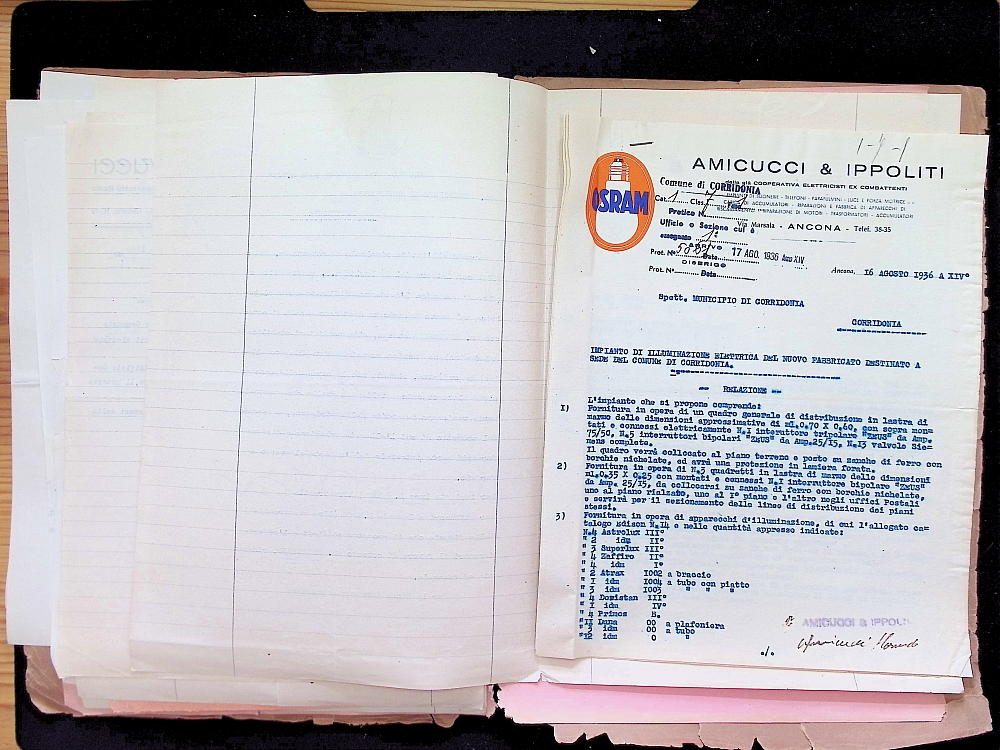 AMICUCCI & IPPOLITI
della già COOPERATIVA ELETTRICISTI EX COMBATTENTI
OSRAM
Comune di CORRIDONIA
Pratica N.
Ufficio o Sezione cui è
assegnata
ARRIVO
Prot. N° Data 17 AGO. 1936 Anno XIV
Prot. N° Data
Via Marsala - ANCONA - Telef. 38-35
Ancona, 16 AGOSTO 1936 A XIV°
Spett. MUNICIPIO DI CORRIDONIA
CORRIDONIA
IMPIANTO DI ILLUMINAZIONE ELETTRICA DEL NUOVO FABBRICATO DESTINATO A
SEDE DEL COMUNE DI CORRIDONIA.
== RELAZIONE ==
L'impianto che si propone comprende:
I) Fornitura in opera di un quadro generale di distribuzione in lastra di
marmo delle dimensioni approssimative di ml.0.70 X 0.60, con sopra mon=
tati e connessi elettricamente N.I interuttore tripolare "ZEUS" da Amp.
75/50, N.5 interruttori bipolari "ZEUS" da Amp.25/15, N.13 valvole Sie=
mens complete.
Il quadro verrà collocato al piano terreno e posto su zanche di ferro con
borchie nichelate, ed avrà una protezione in lamiera forata.
2) Fornitura in opera di N.3 quadretti in lastra di marmo delle dimensioni
ml.0.35 X 0.25 con montati e connessi N.I interruttore bipolare "ZEUS"
da Amp. 25/15, da collocarsi su zanche di ferro con borchie nichelate,
uno al piano rialzato, uno al I° piano e l'altro negli uffici Postali
e servirà per il sezionamento delle linee di distribuzione dei piani
stessi.
3) Fornitura in opera di apparecchi d'illuminazione, di cui l'allegato ca=
talogo Edison N.14 e nelle quantità appresso indicate:
N.4 Astrolux III°
" 2 idm II°
" 3 Superlux III°
" 4 Zaffiro II°
" 4 idm I°
" 2 Atrax I002 a braccio
" I idm I004 a tubo con piatto
" 3 idm I003 " " " "
" 4 Domistan III°
" I idm IV°
" 4 Primos B.
" II Luna 00 a plafoniera
" 3 idm 00 a tubo
" 12 idm 0 "
AMICUCCI & IPPOLITI
./.